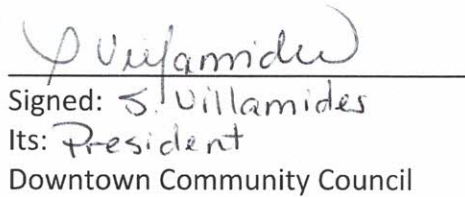 S Villamides
Signed: S. Villamides
Its: President
Downtown Community Council